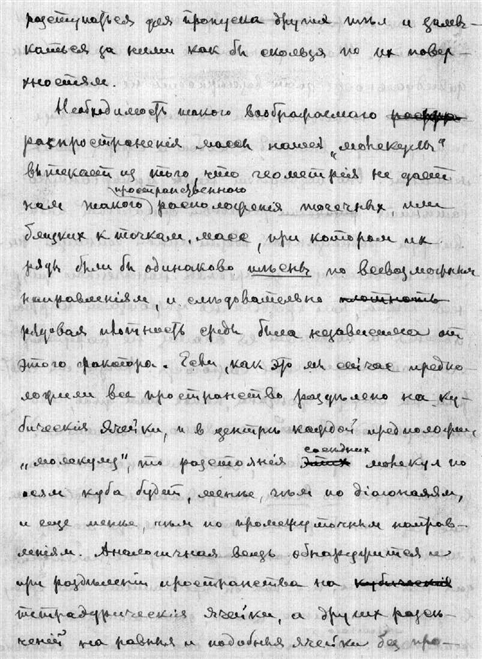 разступаться для пропуска другихъ тѣлъ и замы-
каться за ними какъ бы скользя по ихъ повер-
хностямъ.
Необходимость такого воображаемаго
распространенія массы нашей „молекулы“
вытекаетъ из того что геометрія не даетъ
намъ такого пространственного расположенія точечныхъ, или
близкихъ къ точкамъ, массъ, при которомъ ихъ
ряды были бы одинаково тѣсны по всевозможнымъ
направленіямъ, и слѣдовательно плотность
рядовая плотность среды была независима отъ
этого фактора. Если, какъ это мы сейчас предпо-
ложили все пространство раздѣлено на ку-
бическія ячейки, и въ центрѣ каждой предположимъ
„молекулу“, то разстоянія этихъ сосѣднихъ молекулъ по
осямъ куба будетъ, менѣе, чѣмъ по діагоналямъ,
и еще менѣе, чѣмъ по промежуточнымъ направ-
леніямъ. Аналогичная вещь обнаружится и
при раздѣленіи пространства на кубическія
тетраэдрическія ячейки, а другихъ разсѣ-
ченій на равныя и подобныя ячейки без про-